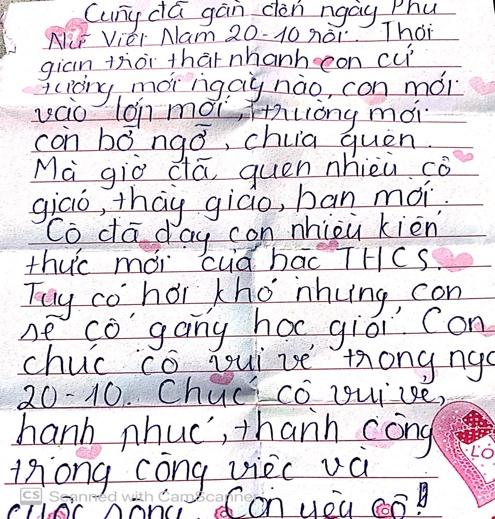 Cũng đã gần đến ngày Phụ
Nữ Việt Nam 20-10 rồi. Thời
gian trôi thật nhanh con cứ
tưởng mới ngày nào, con mới
vào lớp mới, trường mới
còn bỡ ngỡ, chưa quen.
Mà giờ đã quen nhiều cô
giáo, thầy giáo, bạn mới.
Cô đã dạy con nhiều kiến
thức mới của bậc THCS.
Tuy có hơi khó nhưng con
sẽ cố gắng học giỏi. Con
chúc cô vui vẻ trong ngà
20-10. Chúc cô vui vẻ,
hạnh phúc, thành công
trong công việc và
cuộc sống. Con yêu cô!
LO
CS Scanned with CamScanner